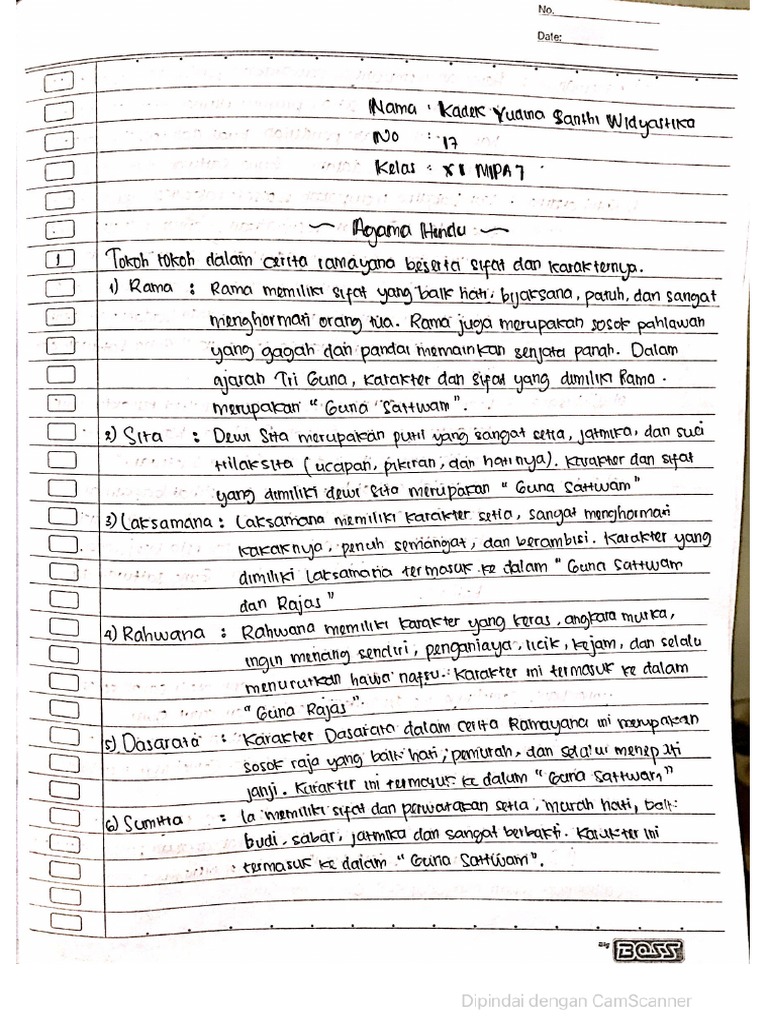 No.
Date:
Nama : Kadek Yudina Santhi Widyastika
No : 17
Kelas : XI MIPA 7
~ Agama Hindu ~
1 Tokoh tokoh dalam cerita ramayana beserta sifat dan karakternya.
1) Rama : Rama memiliki sifat yang baik hati, bijaksana, patuh, dan sangat
menghormati orang tua. Rama juga merupakan sosok pahlawan
yang gagah dan pandai memainkan senjata panah. Dalam
ajaran Tri Guna, karakter dan sifat yang dimiliki Rama.
merupakan "Guna Sattwam".
2) Sita : Dewi Sita merupakan putri yang sangat setia, jatmika, dan suci
trilaksita (ucapan, pikiran, dan hatinya). Karakter dan sifat
yang dimiliki dewi Sita merupakan "Guna Sattwam"
3) Laksamana : Laksamana memiliki karakter setia, sangat menghormati
kakaknya, penuh semangat, dan berambisi. Karakter yang
dimiliki Laksamana termasuk ke dalam "Guna Sattwam
dan Rajas"
4) Rahwana : Rahwana memiliki karakter yang keras, angkara murka,
ingin menang sendiri, penganiaya, licik, kejam, dan selalu
menurutkan hawa nafsu. Karakter ini termasuk ke dalam
"Guna Rajas".
5) Dasarata : Karakter Dasarata dalam cerita Ramayana ini merupakan
sosok raja yang baik hati, pemurah, dan selalui menepati
janji. Karakter ini termasuk ke dalam "Guna Sattwam"
6) Sumitra : Ia memiliki sifat dan perwatakan setia, murah hati, baik
budi, sabar, jatmika dan sangat berbakti. Karakter ini
termasuk ke dalam "Guna Sattwam".
Big BOSS
Dipindai dengan CamScanner